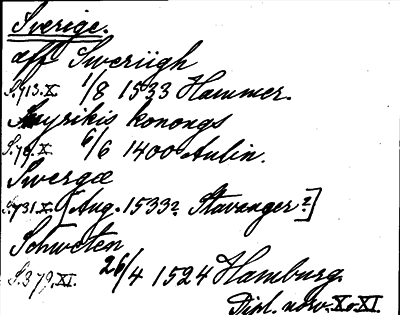 Sverige.
aff Sweriigh
S.713.X. 1/8 1533 Hammer.
Suyrikis konongs
S.76.X. 6/6 1400 Aulin.
Swergæ
S.731.X. [Aug. 1533? Stavanger?]
Schweten
S.379.XI. 26/4 1524 Hamburg.
Dipl. norv. X. XI.